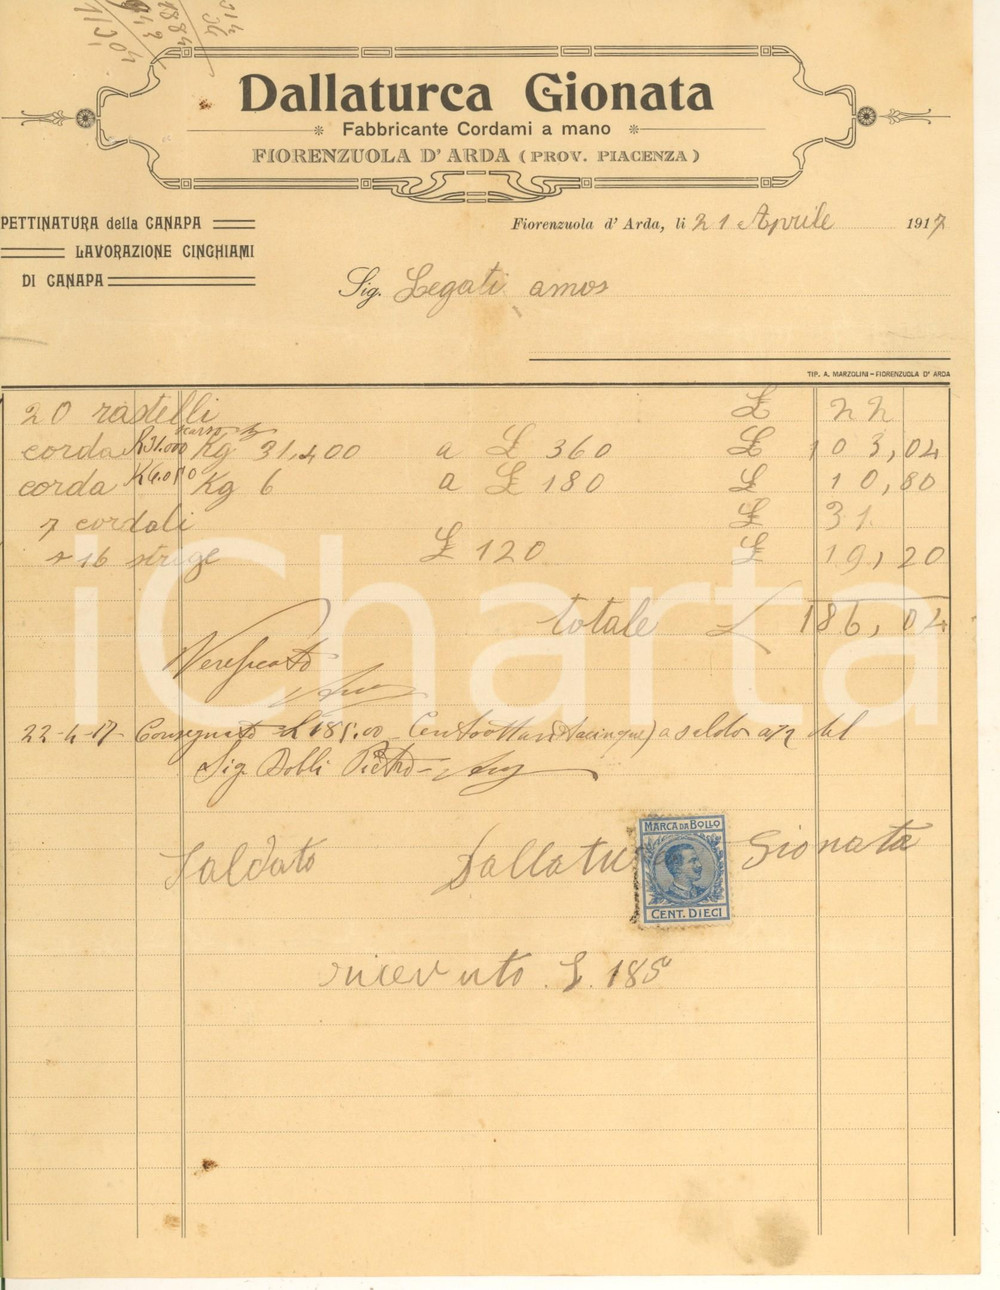 Dallaturca Gionata
Fabbricante Cordami a mano
FIORENZUOLA D'ARDA (PROV. PIACENZA)
PETTINATURA della CANAPA
LAVORAZIONE CINGHIAMI
DI CANAPA
Fiorenzuola d' Arda, li 21 Aprile 1917
Sig. Legati amos
TIP. A. MARZOLINI - FIORENZUOLA D' ARDA
20 rastelli £ 22
corda K 31.000 Kg 31,400 a £ 360 £ 103,04
corda K 6.050 Kg 6 a £ 180 £ 10,80
7 cordali £ 31.
16 £ 120 £ 19,20
totale £ 186,04
Verificato
22-4-17- Consegnato £ 185.00 Centoottantacinque) a saldo del
Sig. Dolli Pietro
MARCA DA BOLLO
Saldato Dallatu Gionata
CENT. DIECI
ricevuto £. 185
iCharta